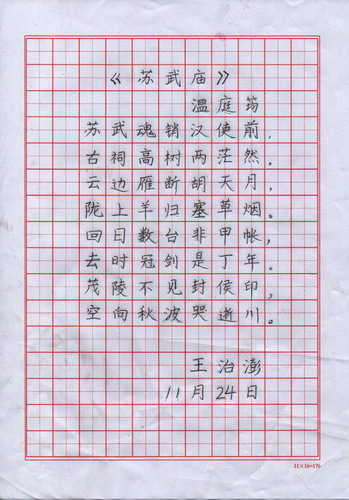 《苏武庙》
温庭筠
苏武魂销汉使前，
古祠高树两茫然。
云边雁断胡天月，
陇上羊归塞草烟。
回日数台非甲帐，
去时冠剑是丁年。
茂陵不见封侯印，
空向秋波哭逝川。
王治澎
11月24日
11×16=176